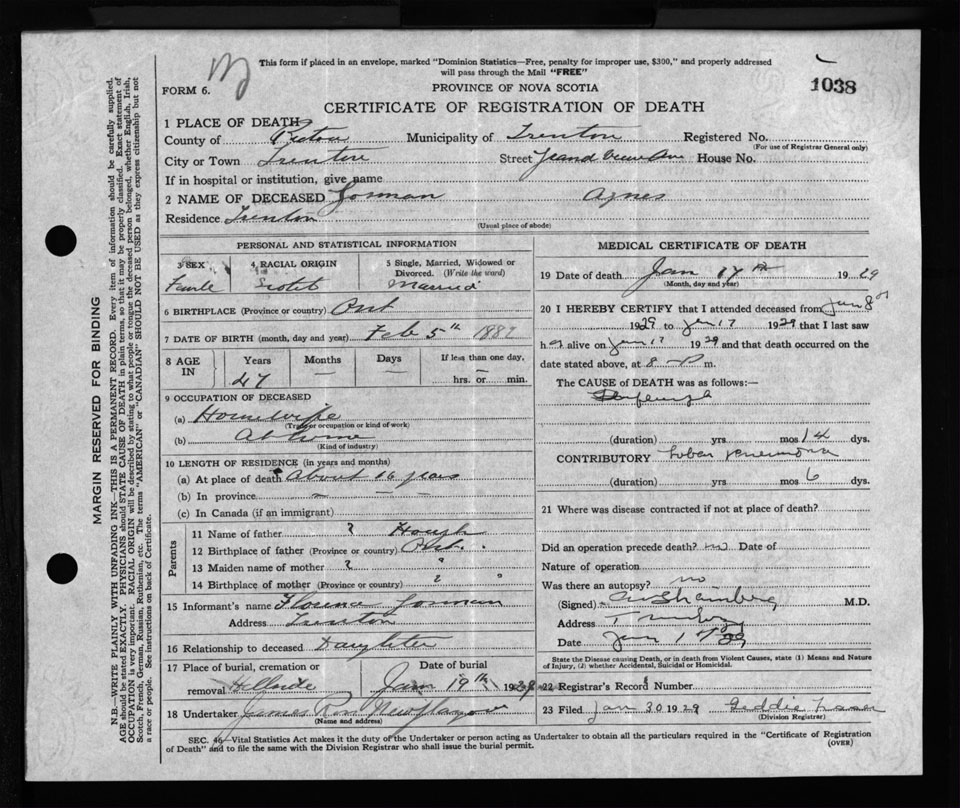 This form if placed in an envelope, marked "Dominion Statistics—Free, penalty for improper use, $300," and properly addressed
will pass through the Mail "FREE"
FORM 6.
PROVINCE OF NOVA SCOTIA
1038
CERTIFICATE OF REGISTRATION OF DEATH
1 PLACE OF DEATH
County of Pictou Municipality of Trenton Registered No.
(For use of Registrar General only)
City or Town Trenton Street House No.
If in hospital or institution, give name
2 NAME OF DECEASED Gorman Agnes
Residence Trenton
(Usual place of abode)
PERSONAL AND STATISTICAL INFORMATION
3 SEX 4 RACIAL ORIGIN 5 Single, Married, Widowed or
Divorced. (Write the word)
Scotch Married
6 BIRTHPLACE (Province or country) Ont
7 DATE OF BIRTH (month, day and year) Feb 5th 1882
8 AGE IN Years Months Days If less than one day,
47 — — hrs. or min.
9 OCCUPATION OF DECEASED
(a) Housewife
(Trade or occupation or kind of work)
(b) At home
(Kind of industry)
10 LENGTH OF RESIDENCE (in years and months)
(a) At place of death About 16 years
(b) In province — — —
(c) In Canada (if an immigrant)
Parents
11 Name of father ? Hough
12 Birthplace of father (Province or country) Ont.
13 Maiden name of mother ? "
14 Birthplace of mother (Province or country) ? "
15 Informant's name Florence Gorman
Address Trenton
16 Relationship to deceased Daughter
17 Place of burial, cremation or Date of burial
removal Jan 19th 1929
18 Undertaker James New Glasgow
(Name and address)
MEDICAL CERTIFICATE OF DEATH
19 Date of death Jan 17th 1929
(Month, day and year)
20 I HEREBY CERTIFY that I attended deceased from Jan 8th
1929 to Jan 17 1929 that I last saw
h alive on Jan 17 1929 and that death occurred on the
date stated above, at 8 P m.
The CAUSE of DEATH was as follows:—
(duration) yrs mos 14 dys.
CONTRIBUTORY Lobar Pneumonia
(duration) yrs mos 6 dys.
21 Where was disease contracted if not at place of death?
Did an operation precede death? no Date of
Nature of operation
Was there an autopsy? no
(Signed) M.D.
Address
Date Jan 29
State the Disease causing Death, or in death from Violent Causes, state (1) Means and Nature
of Injury, (2) whether Accidental, Suicidal or Homicidal.
22 Registrar's Record Number
23 Filed Jan 30 1929
(Division Registrar)
SEC. 46—Vital Statistics Act makes it the duty of the Undertaker or person acting as Undertaker to obtain all the particulars required in the "Certificate of Registration
of Death" and to file the same with the Division Registrar who shall issue the burial permit.
(OVER)
MARGIN RESERVED FOR BINDING
N.B.—WRITE PLAINLY WITH UNFADING INK—THIS IS A PERMANENT RECORD. Every item of information should be carefully supplied.
AGE should be stated EXACTLY. PHYSICIANS should STATE CAUSE OF DEATH in plain terms, so that it may be properly classified. Exact statement of
OCCUPATION is very important. RACIAL ORIGIN will be described by stating to what people or tongue the deceased person belonged, whether English, Irish,
Scotch, French, German, Russian, Ruthenian, etc. The terms "AMERICAN" or "CANADIAN" SHOULD NOT BE USED as they express citizenship but not
a race or people. See instructions on back of Certificate.